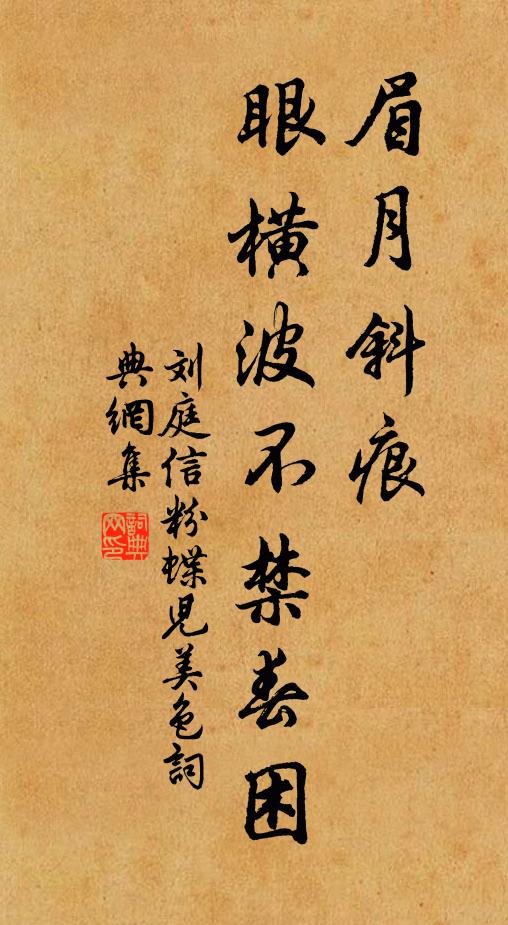 眉月斜痕
眼橫波不禁春困
刘庭信粉蝶児美色詞
典網集
詞典
网印